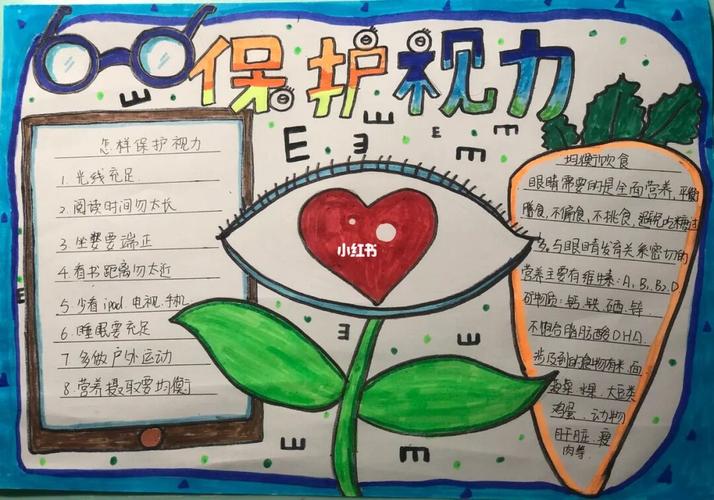 保护视力
怎样保护视力
1. 光线充足
2. 阅读时间勿太长
3. 坐姿要端正
4. 看书距离勿太近
5. 少看ipad 电视.手机
6. 睡眠要充足
7. 多做户外运动
8. 营养摄取要均衡
E
E
E
小红书
均衡饮食
眼睛需要的是全面营养,平衡
膳食,不偏食,不挑食,避免吃糖过
多,与眼睛发育关系密切的
营养主要有维生素:A,B1,B2,D
矿物质:钙.铁.硒.锌
不饱合脂肪酸DHA.
涉及到的食物有米.面
蔬菜 水果.大豆类
鸡蛋.动物
肝脏.瘦
肉等